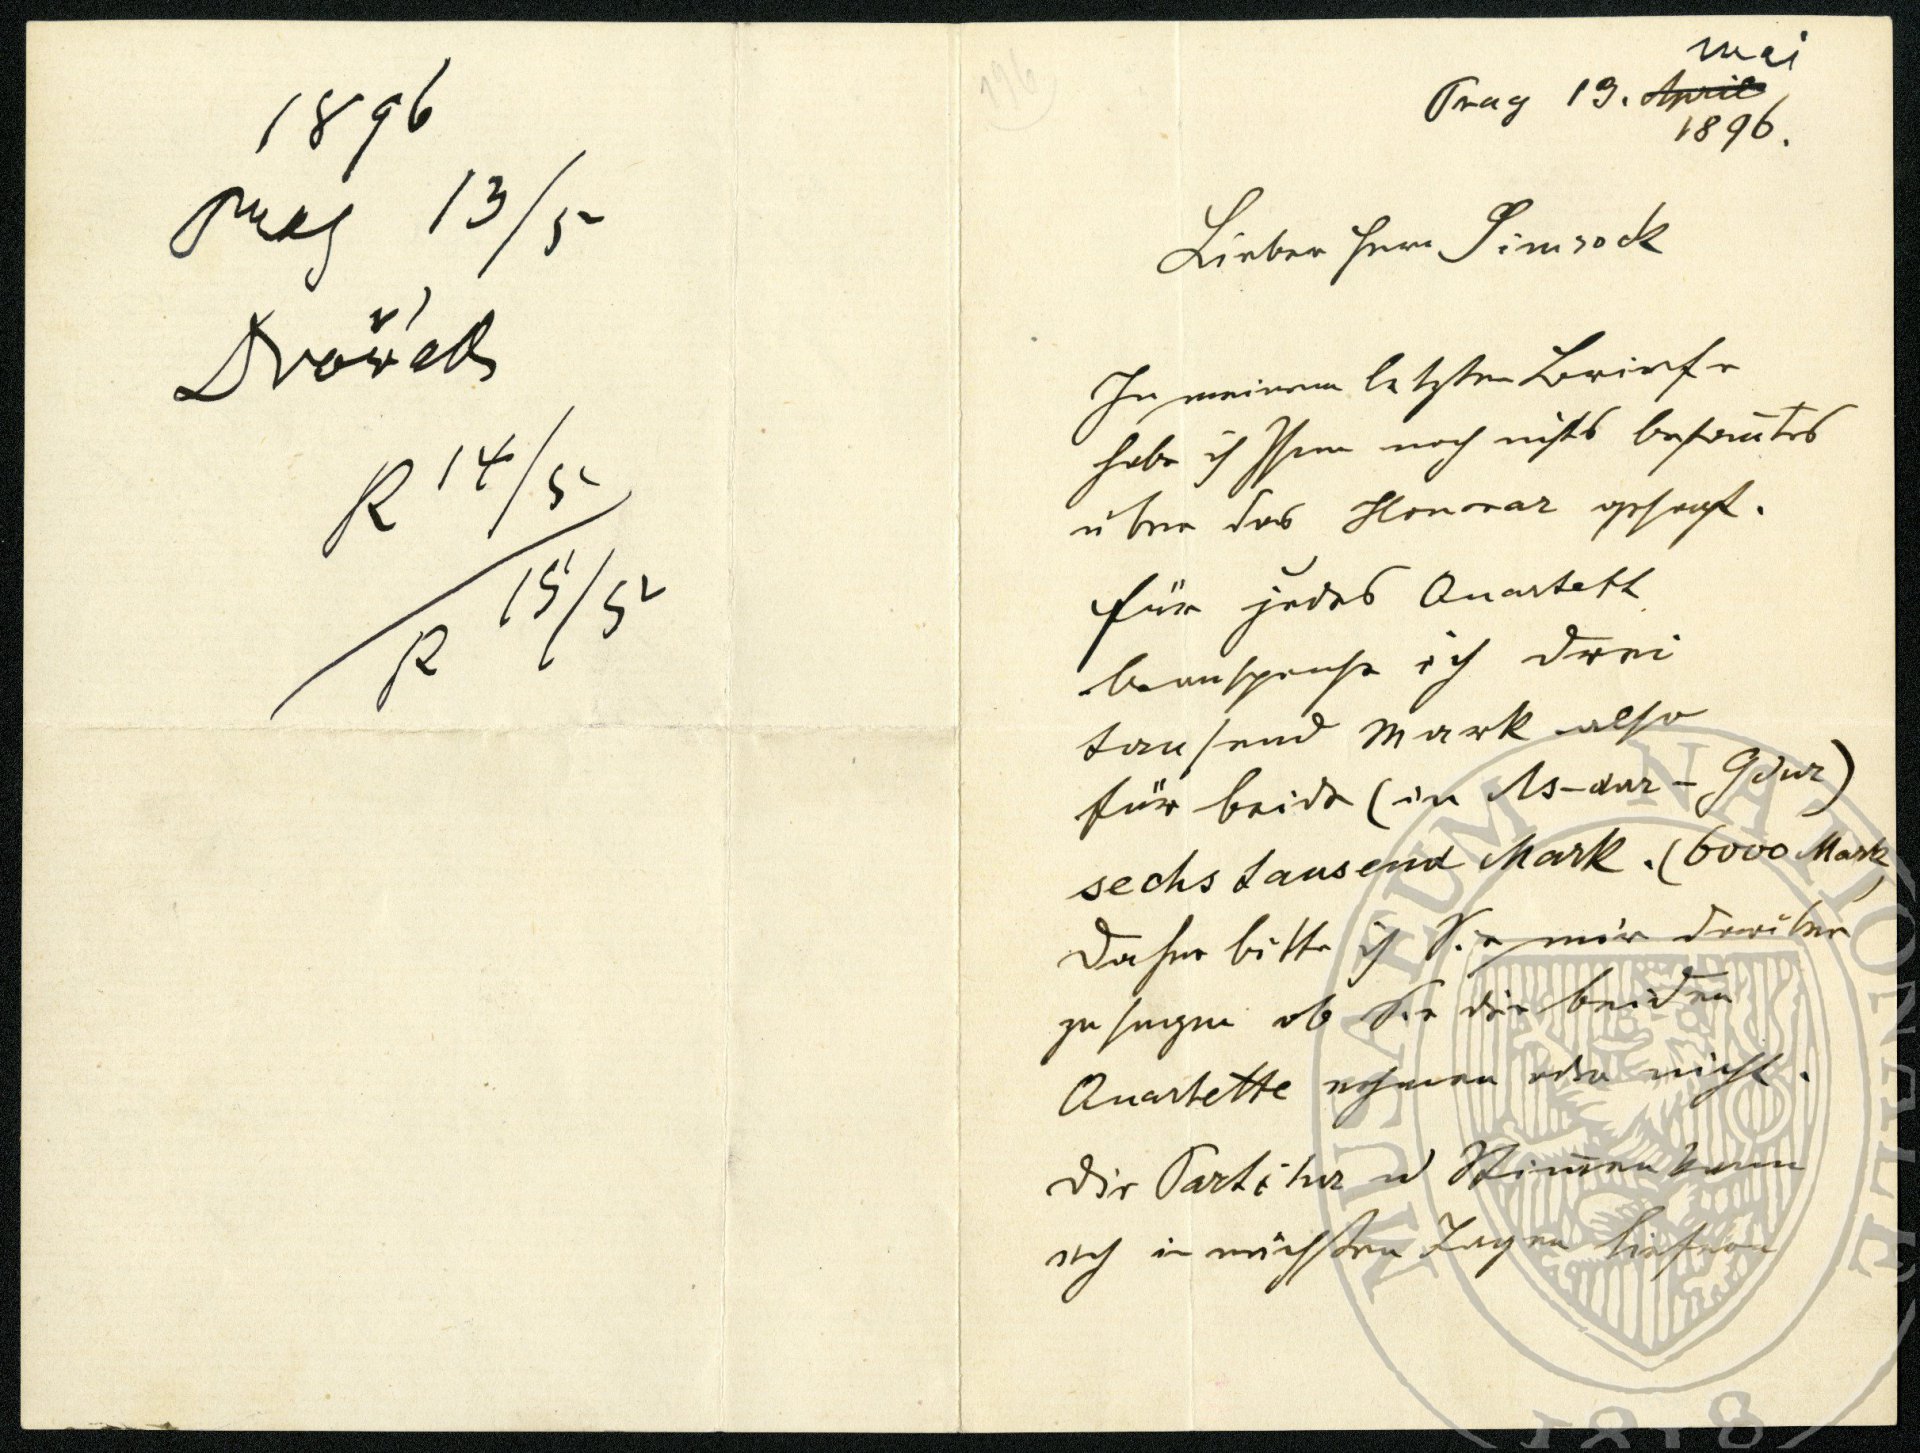 1896
Prag 13/5
Dvořák
R 14/5
R 15/5
196
mai
Prag 13. April
1896.
Lieber Herr Simrock
In meinem letzten Briefe
habe ich Ihnen noch nichts bestim̅tes
über das Honorar gesagt.
für jedes Quartett
beanspruche ich drei
tausend Mark also
für beide (in As-dur – Gdur)
sechs tausend Mark. (6000 Mark)
Daher bitte ich Sie mir darüber
zu sagen ob Sie die beiden
Quartette nehmen oder nicht.
Die Partitur u Stim̅en kann
ich in nächsten Tagen liefern
MUSAEUM NATIONALE
1818